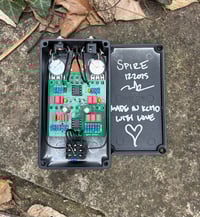 SPIRE
122075
MADE IN KCMO
WITH LOVE